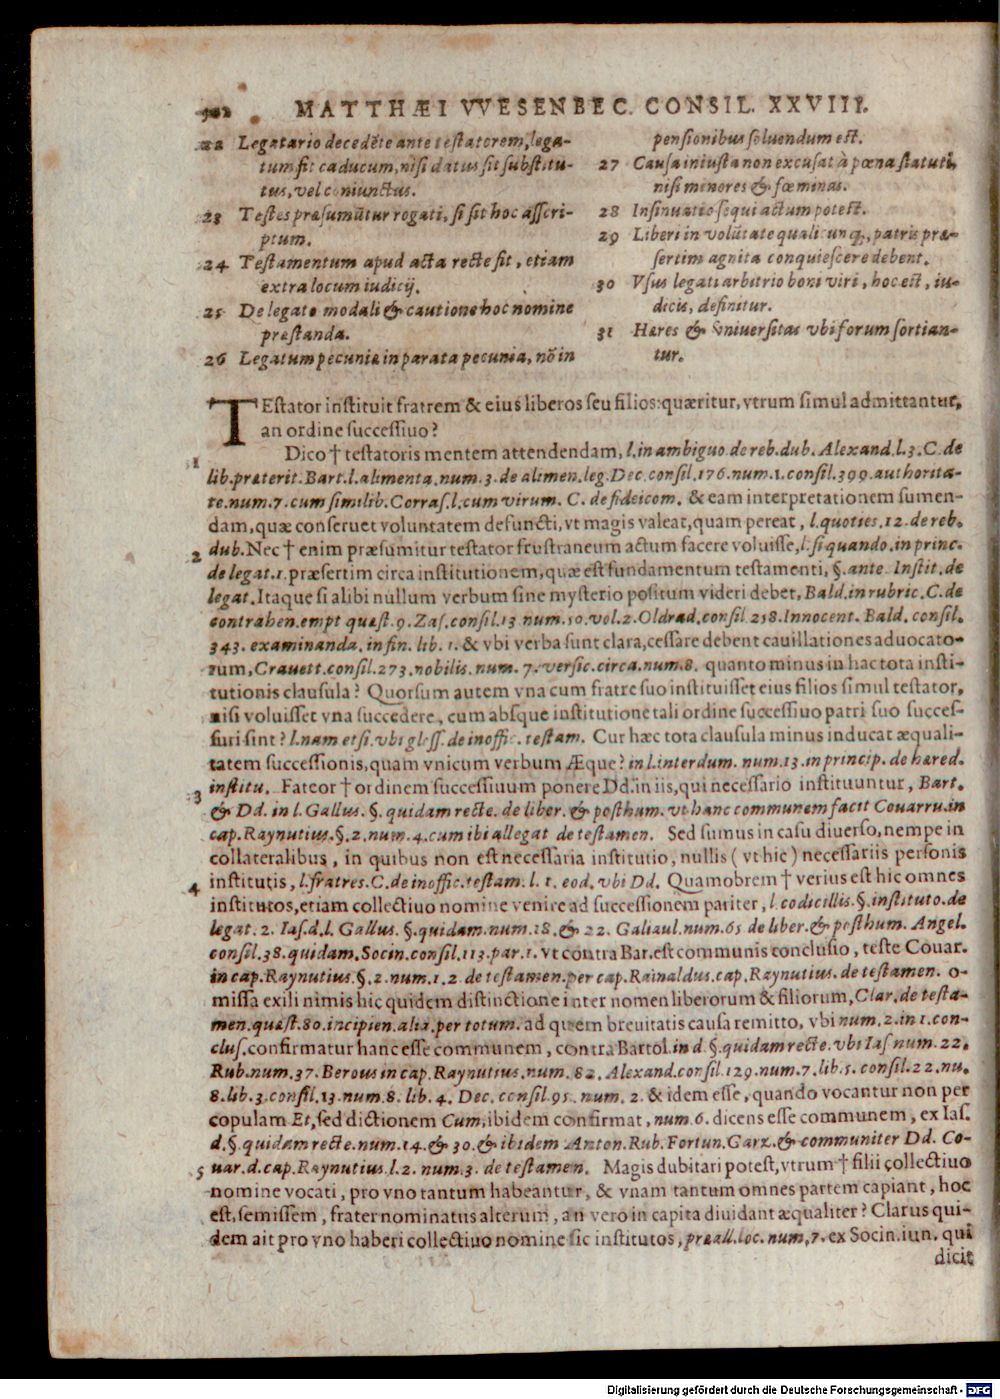 MATTHÆI VVESENBEC. CONSIL. XXVIII.
22 Legatario decedēte ante testatorem, lega-
tum fit caducum, nisi datus sit substitu-
tus, vel coniunctus.
23 Testes præsumūtur rogati, si sit hoc asscri-
ptum.
24 Testamentum apud acta recte fit, etiam
extra locum iudicij.
25 De legato modali & cautione hoc nomine
præstanda.
26 Legatum pecuniæ in parata pecunia, nō in
pensionibus soluendum est.
27 Causa iniusta non excusat à pœna statuti,
nisi menores & fœminas.
28 Insinuatio sequi actum potest.
29 Liberi in volūtate qualicunq;, patris præ-
sertim agnita conquiescere debent.
30 Vsus legati arbitrio boni viri, hoc est, iu-
dicis, definitur.
31 Hæres & vniuersitas vbi forum sortian-
tur.
TEstator instituit fratrem & eius liberos seu filios: quæritur, vtrum simul admittantur,
an ordine successiuo?
1 Dico † testatoris mentem attendendam, l. in ambiguo. de reb. dub. Alexand. l. 3. C. de
lib. præterit. Bart. l. alimenta. num. 3. de alimen. leg. Dec. consil. 176. num. 1. consil. 399. authorita-
te. num. 7. cum similib. Corras. l. cum virum. C. de fideicom. & eam interpretationem sumen-
dam, quæ conseruet voluntatem defuncti, vt magis valeat, quam pereat, l. quoties. 12. de reb.
2 dub. Nec † enim præsumitur testator frustraneum actum facere voluisse, l. si quando. in princ.
de legat. 1. præsertim circa institutionem, quæ est fundamentum testamenti, §. ante. Instit. de
legat. Itaque si alibi nullum verbum sine mysterio positum videri debet, Bald. in rubric. C. de
contrahen. empt quæst. 9. Zas. consil. 13 num. 10. vol. 2. Oldrad. consil 218. Innocent. Bald. consil.
343. examinanda. in fin. lib. 1. & vbi verba sunt clara, cessare debent cauillationes aduocato-
rum, Crauett. consil. 273. nobilis. num. 7. versic. circa. num. 8. quanto minus in hac tota insti-
tutionis clausula? Quorsum autem vna cum fratre suo instituisset eius filios simul testator,
nisi voluisset vna succedere, cum absque institutione tali ordine successiuo patri suo succes-
suri sint? l. nam etsi. vbi gloss. de inoffic. testam. Cur hæc tota clausula minus inducat æquali-
tatem successionis, quam vnicum verbum Æque? in l. interdum. num. 13. in princip. de hæred.
3 institu. Fateor † ordinem successiuum ponere Dd. in iis, qui necessario instituuntur, Bart.
& Dd. in l. Gallus. §. quidam recte. de liber. & posthum. vt hanc communem facit Couarru. in
cap. Raynutius. §. 2. num. 4. cum ibi allegat de testamen. Sed sumus in casu diuerso, nempe in
collateralibus, in quibus non est necessaria institutio, nullis (vt hic) necessariis personis
institutis, l. fratres. C. de inoffic. testam. l. 1. eod. vbi Dd. Quamobrem † verius est hic omnes
4 institutos, etiam collectiuo nomine venire ad successionem pariter, l. codicillis. §. instituto. de
legat. 2. Ias. d. l. Gallus. §. quidam. num. 18. & 22. Galiaul. num. 65 de liber. & posthum. Angel.
consil. 38. quidam. Socin. consil. 113. par. 1. vt contra Bar. est communis conclusio, teste Couar.
in cap. Raynutius. §. 2. num. 1. 2. de testamen. per cap. Rainaldus. cap. Raynutius. de testamen. o-
missa exili nimis hic quidem distinctione inter nomen liberorum & filiorum, Clar. de testa-
men. quæst. 80. incipien. alia. per totum. ad quem breuitatis causa remitto, vbi num. 2. in 1. con-
clus. confirmatur hanc esse communem, contra Bartol. in d. §. quidam recte. vbi Ias num. 22.
Rub. num. 37. Berous in cap. Raynutius. num. 82. Alexand. consil. 129. num. 7. lib. 5. consil. 22. nu.
8. lib. 3. consil. 13. num. 8. lib. 4. Dec. consil. 95. num. 2. & idem esse, quando vocantur non per
copulam Et, sed dictionem Cum, ibidem confirmat, num. 6. dicens esse communem, ex Ias.
d. §. quidam recte. num. 14. & 30. & ibidem Anton. Rub. Fortun. Garz. & communiter Dd. Co-
5 uar. d. cap. Raynutius. l. 2. num. 3. de testamen. Magis dubitari potest, vtrum † filii collectiuo
nomine vocati, pro vno tantum habeantur, & vnam tantum omnes partem capiant, hoc
est, semissem, frater nominatus alterum, an vero in capita diuidant æqualiter? Clarus qui-
dem ait pro vno haberi collectiuo nomine sic institutos, præall. loc. num. 7. ex Socin. iun. qui
dicit
Digitalisierung gefördert durch die Deutsche Forschungsgemeinschaft - DFG